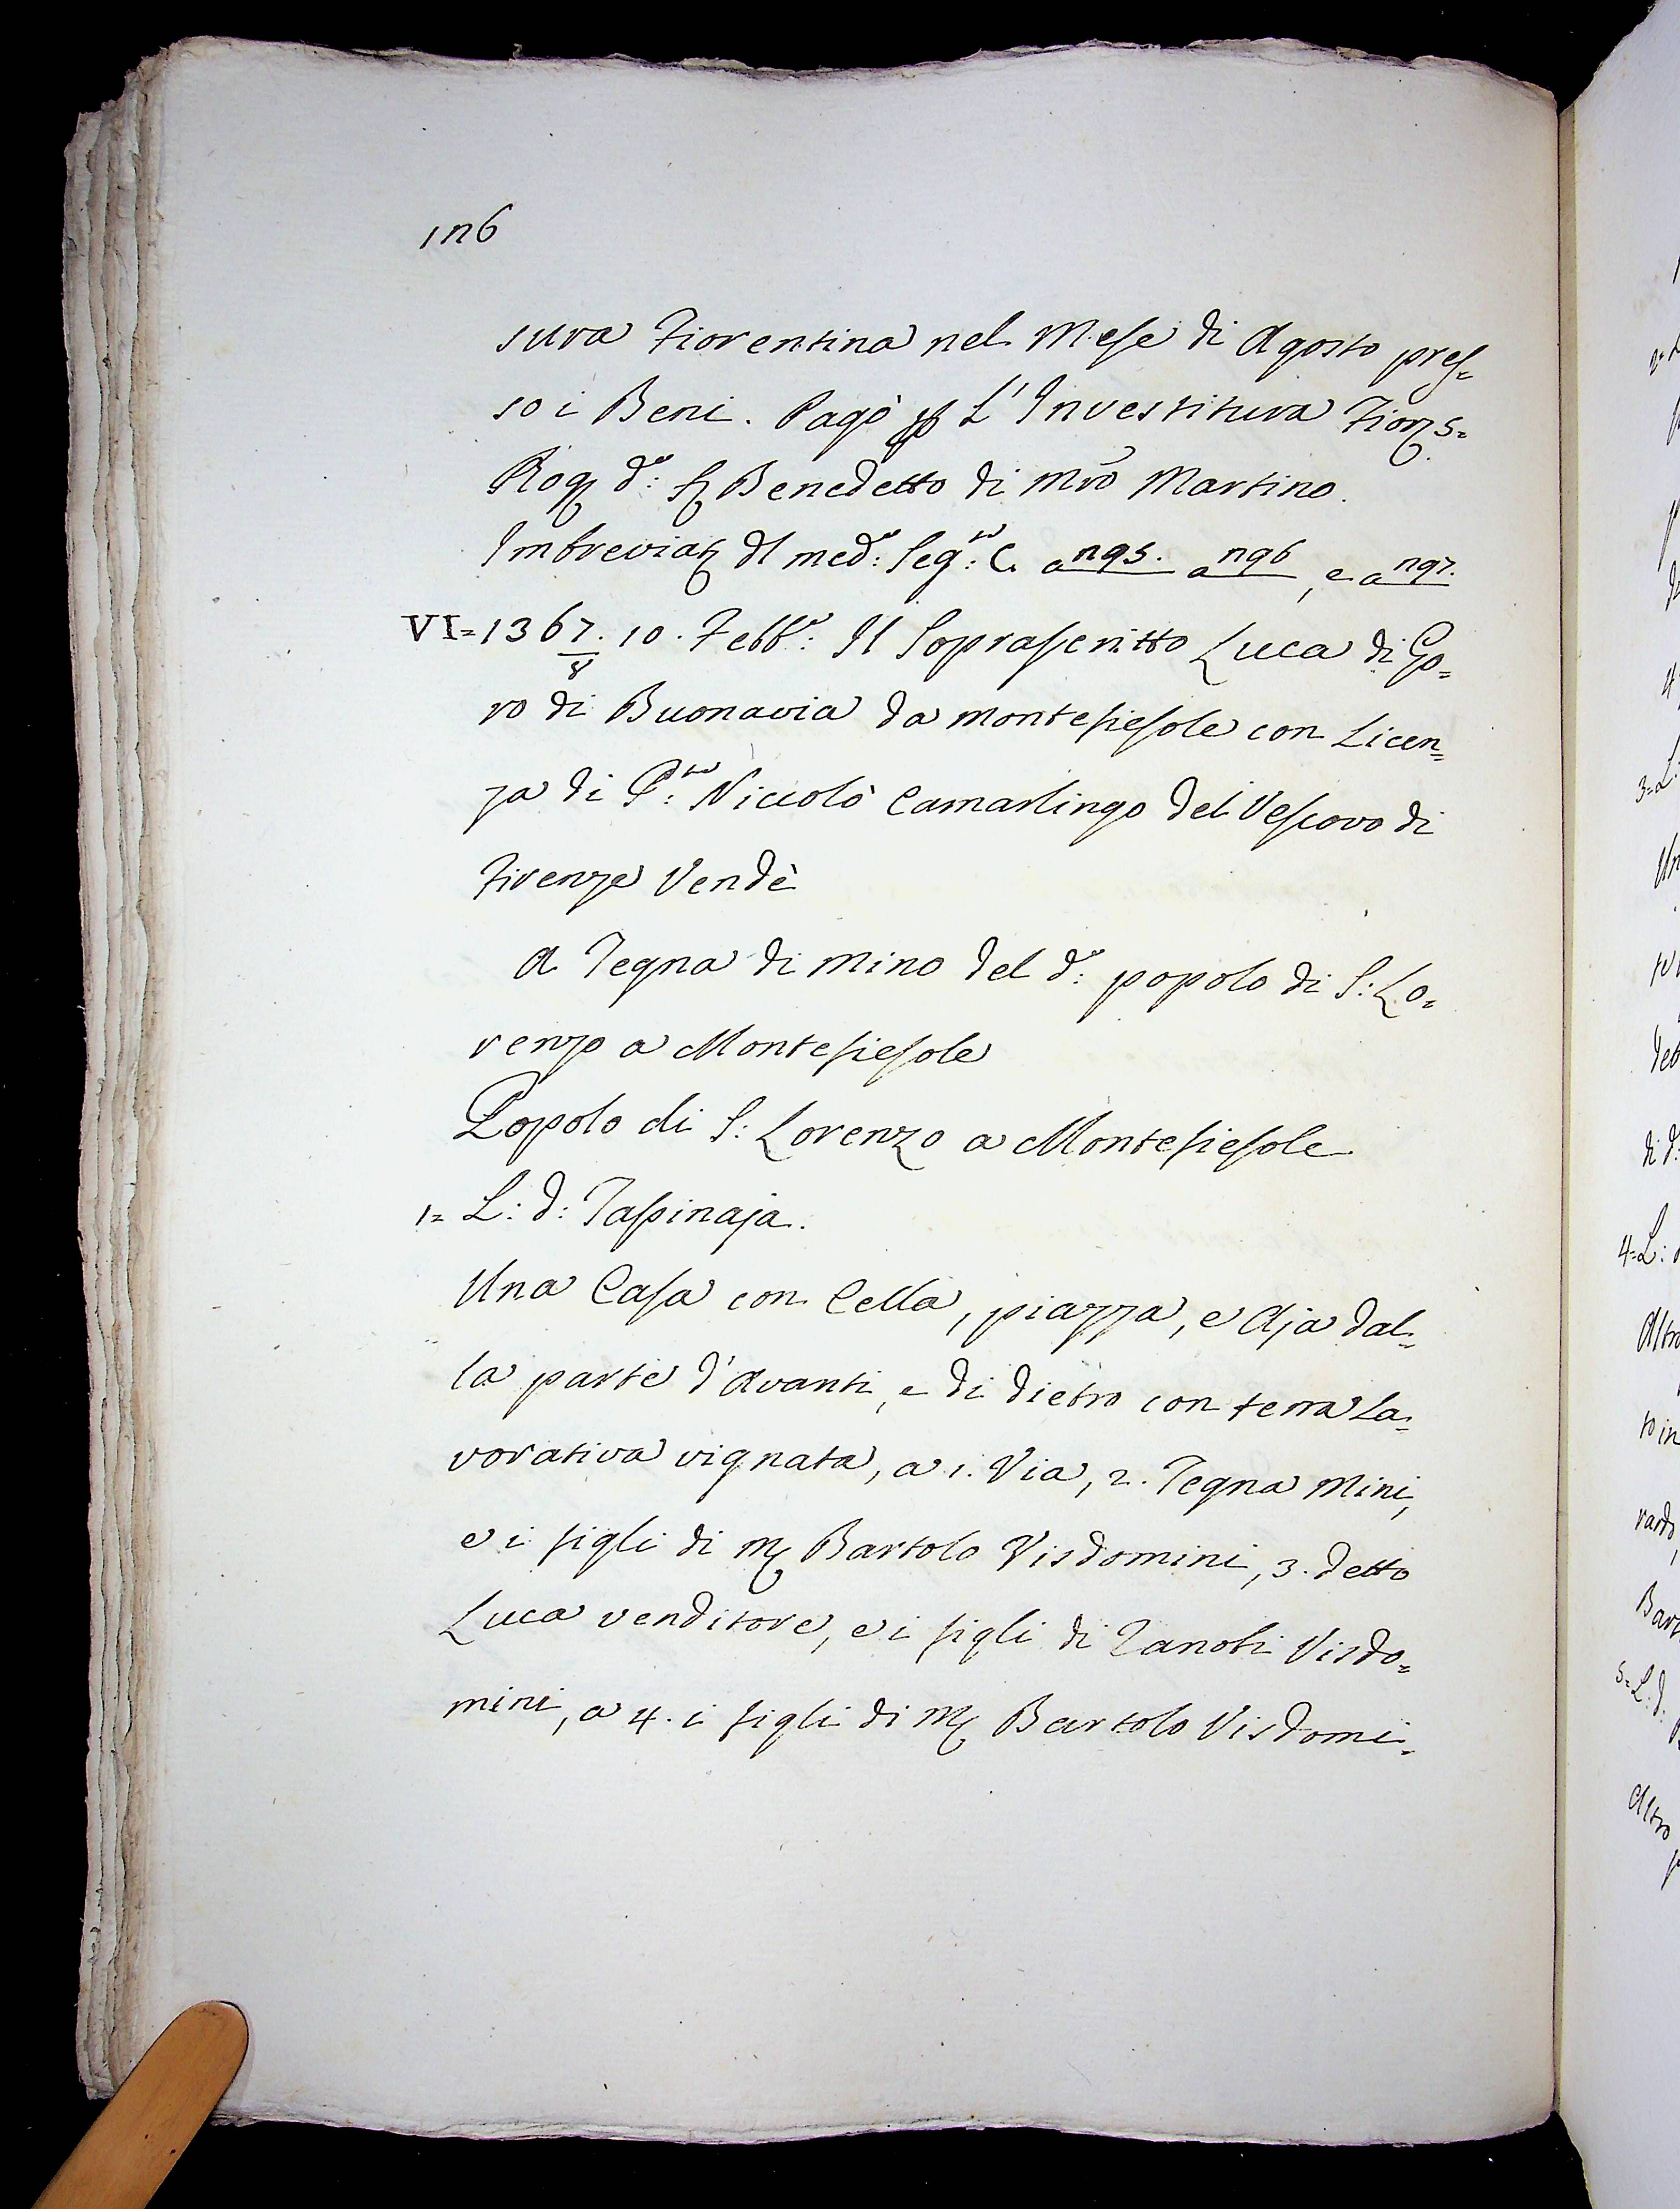 126
sura Fiorentina nel Mese di Agosto pres=
so i Beni. Pagò p L'Investitura Fior. 5=
Rog. d.o: S. Benedetto di Mro Martino.
Imbreviat. dl med.o: Seg.to: C. a 295. a 296, e a 297.
VI= 1367/8. 10. Febb.o: Il Soprascritto Luca di Go=
ro di Buonavia da Montefiesole con Licen=
za di P.te: Niccolò Camarlingo del Vescovo di
Firenze Vendè
A Tegna di Mino del d.o: popolo di S: Lo=
renzo a Montefiesole
Popolo di S: Lorenzo a Montefiesole
1= L: d: Tassinaja.
Una Casa con Cella, piazza, e Aja dal=
la parte d'Avanti, e di dietro con terra La=
vorativa vignata, a 1. Via, 2. Tegna Mini,
e i figli di M. Bartolo Visdomini, 3. detto
Luca venditore, e i figli di Zanobi Visdo=
mini, a 4. i figli di M. Bartolo Visdomi=